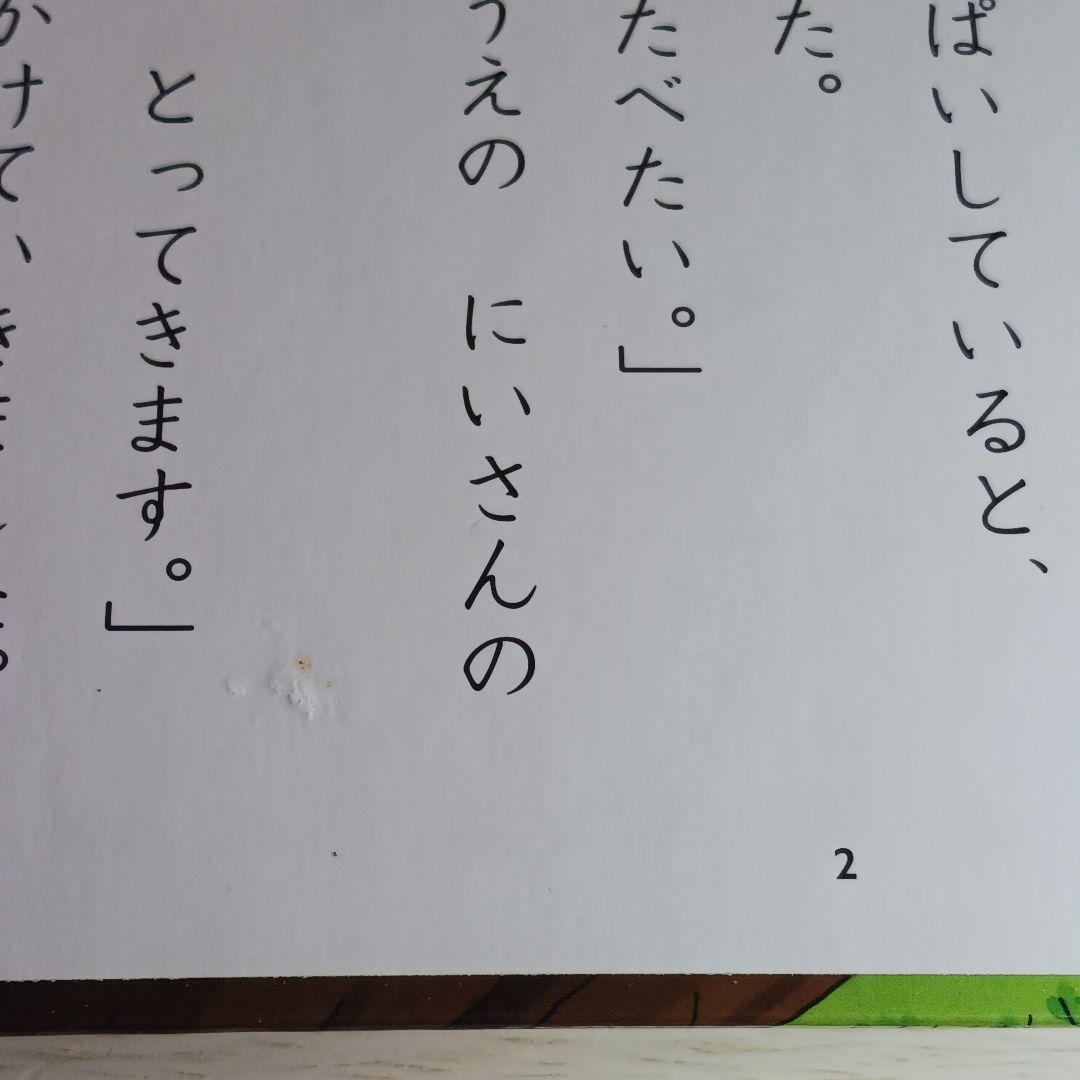 ぱいしていると、
た。
たべたい。」
うえの　にいさんの
とってきます。」
かけて、
2